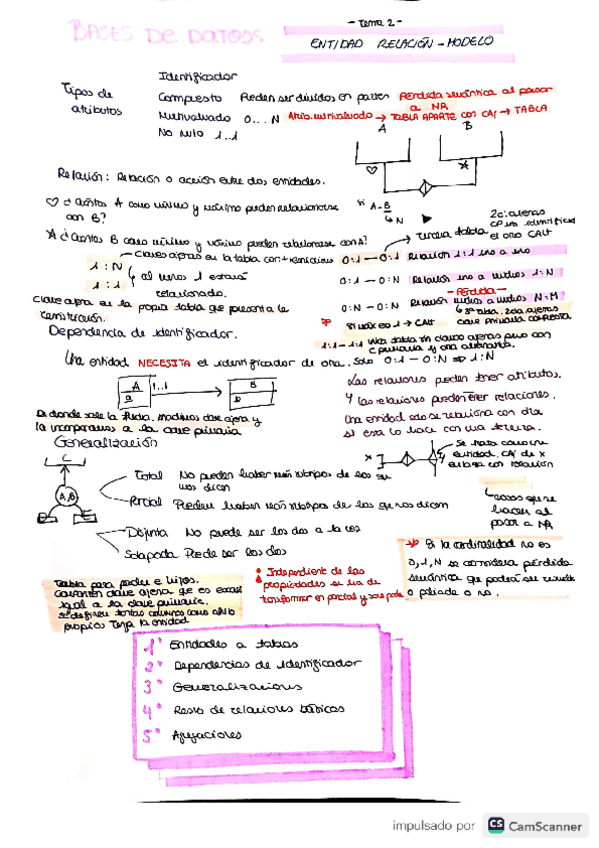 BASES DE DATOS
- Tema 2 -
ENTIDAD RELACIÓN - MODELO
Tipos de atributos
Identificador
Compuesto Pueden ser divididos en partes Pérdida semántica al pasar a MR
Multivaluado 0...N Atrib. multivaluado → TABLA APARTE con CAj → TABLA
No nulo 1..1
A B
Relación: Relación o acción entre dos entidades.
♡ ¿Cuántos A como mínimo y máximo pueden relacionarse con B?
si A-B
↳ N
☆ ¿Cuántos B como mínimo y máximo pueden relacionarse con A?
→ Tercera tabla
2 c. ajenas
CP un identificador
el otro CAlt
Claves ajenas en la tabla con restricciones
0:1 — 0:1 Relación 1:1 uno a uno
1:N
1:1
↳ al menos 1 estará relacionado.
0:1 — 0:N Relación uno a muchos 1:N
- Pérdida -
0:N — 0:N Relación muchos a muchos N:M
Clave ajena en la propia tabla que presenta la restricción.
↳ 3ª tabla, 2 c. ajenas clave primaria compuesta
Si máx es 1 → CAlt
1:1 - 1:1 única tabla sin claves ajenas pero con c. primaria y otra alternativa.
Dependencia de identificador.
Una entidad NECESITA el identificador de otra. Solo 0:1 — 0:N ⇒ 1:N
A 1..1 B
a b
De donde sale la flecha, movemos clave ajena y la incorporamos a la clave primaria
Las relaciones pueden tener atributos.
Y las relaciones pueden tener relaciones.
Una entidad solo se relaciona con otra si esta lo hace con una tercera.
Generalización
C
A,B
X
Se trata como una entidad, CAj de x enlaza con relación
Total No pueden haber más subtipos de los que nos dicen
Parcial Pueden haber más subtipos de los que nos dicen
cosas que se hacen al pasar a MR
Disjunta No puede ser los dos a la vez
Solapada Puede ser los dos
* Si la cardinalidad no es 0, 1, N se considera pérdida semántica que podrá ser resuelta o paliada o no.
Tabla para padre e hijos.
Contienen clave ajena que es exactamente igual a la clave primaria.
Se definen tantas columnas como atrib. propios tenga la entidad
• Independiente de las propiedades se ha de transformar en parcial y solapada
1º Entidades a tablas
2º Dependencias de identificador
3º Generalizaciones
4º Resto de relaciones básicas
5º Agregaciones
impulsado por CS CamScanner